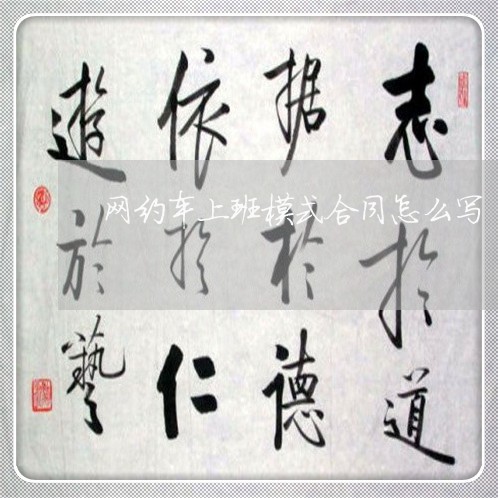 志於道
据於德
依於仁
遊於藝
网约车上班模式合同怎么写